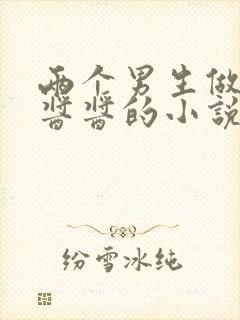 两个男生做
酱酱的小说
纷雪冰纯